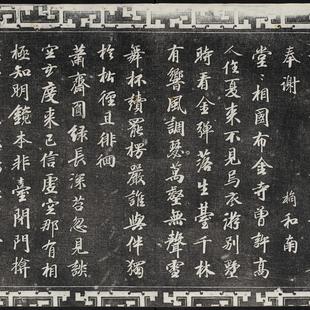 奉謝
和南
堂〻相國布金寺曾許高
人住夏來不見烏衣游別墅
時看金彈落生臺千林
有響風調瑟萬壑無聲雪
舞杯讀罷楞嚴誰與伴獨
於松徑且徘徊
蕭齋圓綠長深苔忽見談
空玄度來已信虛空那有相
極知明鏡本非臺閉門擀